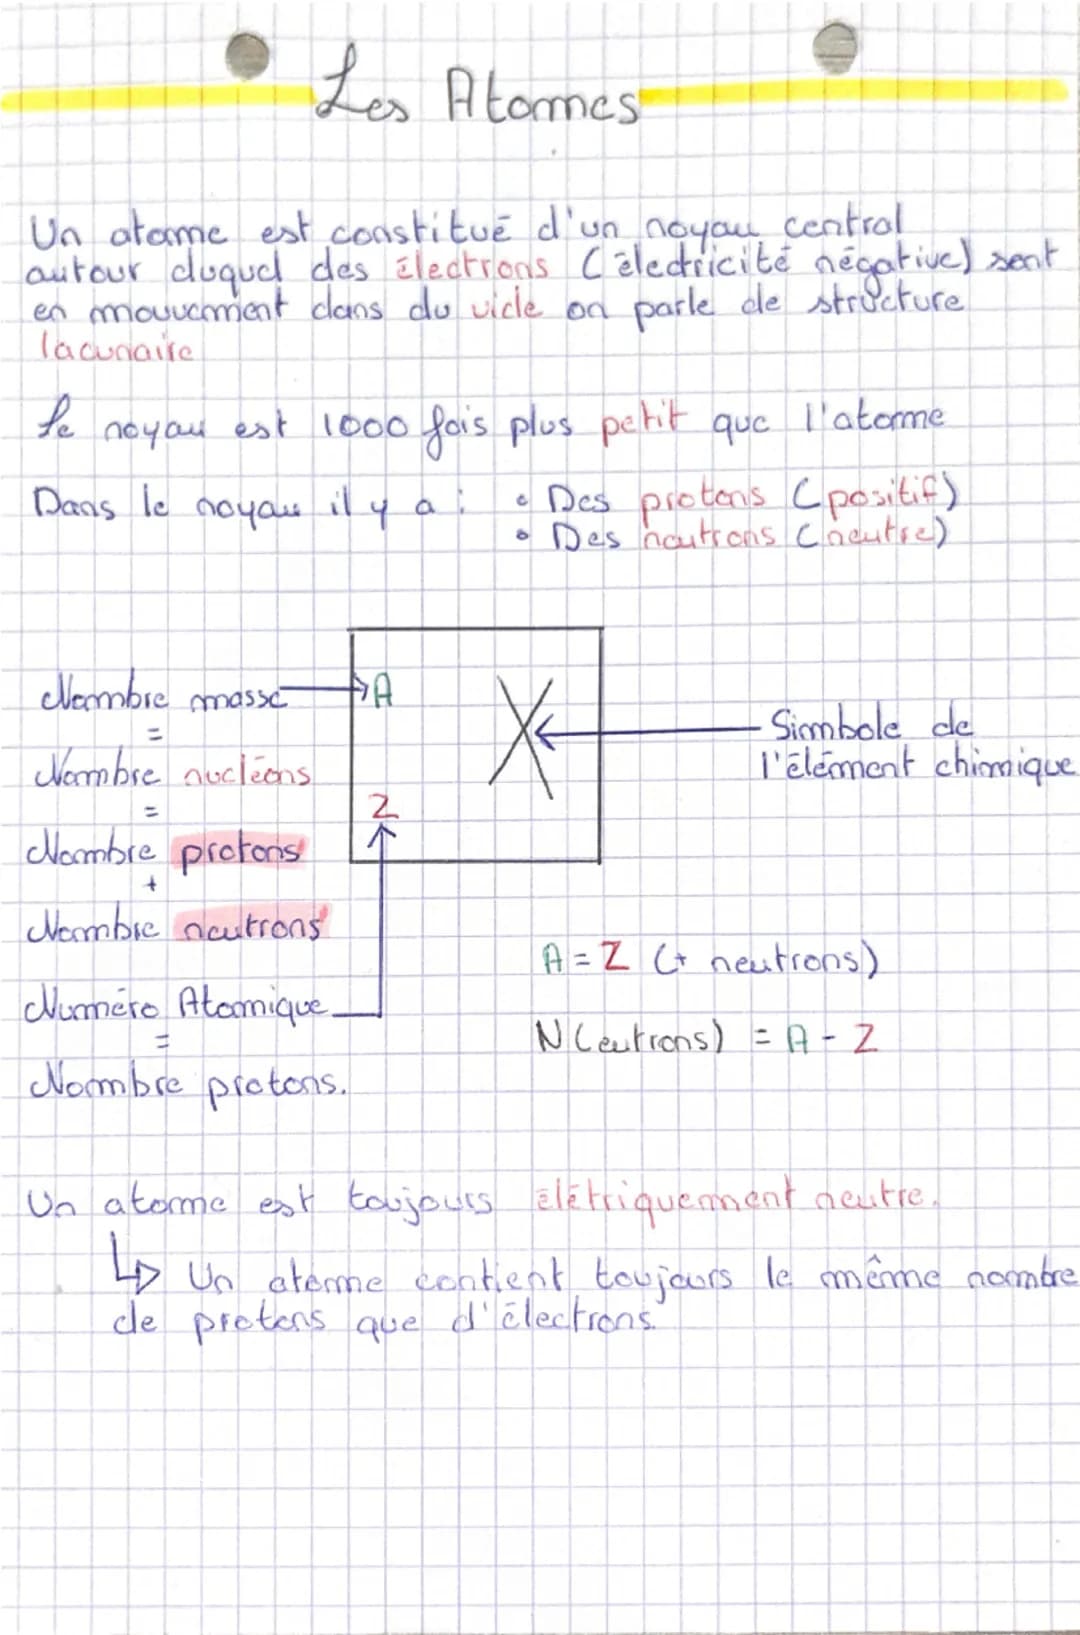 Les Atomes
Un atome est constitué d'un noyau central
autour duquel des électrons (électricité négative) sont
en mouvement dans du vide on parle de structure
lacunaire
Le noyau est 1000 fois plus petit que l'atome
Dans le noyau il y a : • Des protons (positif)
• Des neutrons (neutre)
Nombre masse → A
X ← Simbole de
l'élément chimique
=
Nombre nucléons
=
Z
Nombre protons
+
Nombre neutrons
A = Z (+ neutrons)
Numéro Atomique
N(eutrons) = A - Z
=
Nombre protons.
Un atome est toujours élétriquement neutre.
↳ Un atome contient toujours le même nombre
de protons que d'électrons.